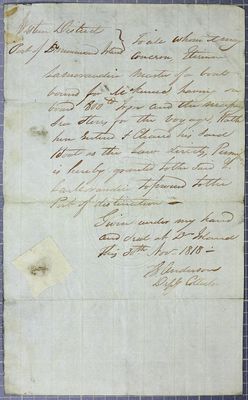 Western District
Port of Drummond Island
To all whom it may
concern, Etienne
Lamorandiere Master of a boat
bound for McKinac having on
board 800 lbs and the necessary
Sea Stores for the voyage, Hath
here Entered & Cleared his said
Boat as the Law directs, Permit
is hereby granted to the said
Lamorandiere to proceed to the
Port of distination
Given under my hand
and seal at Dr. Island
this 30th Novr. 1818
Anderson
Depy Collector